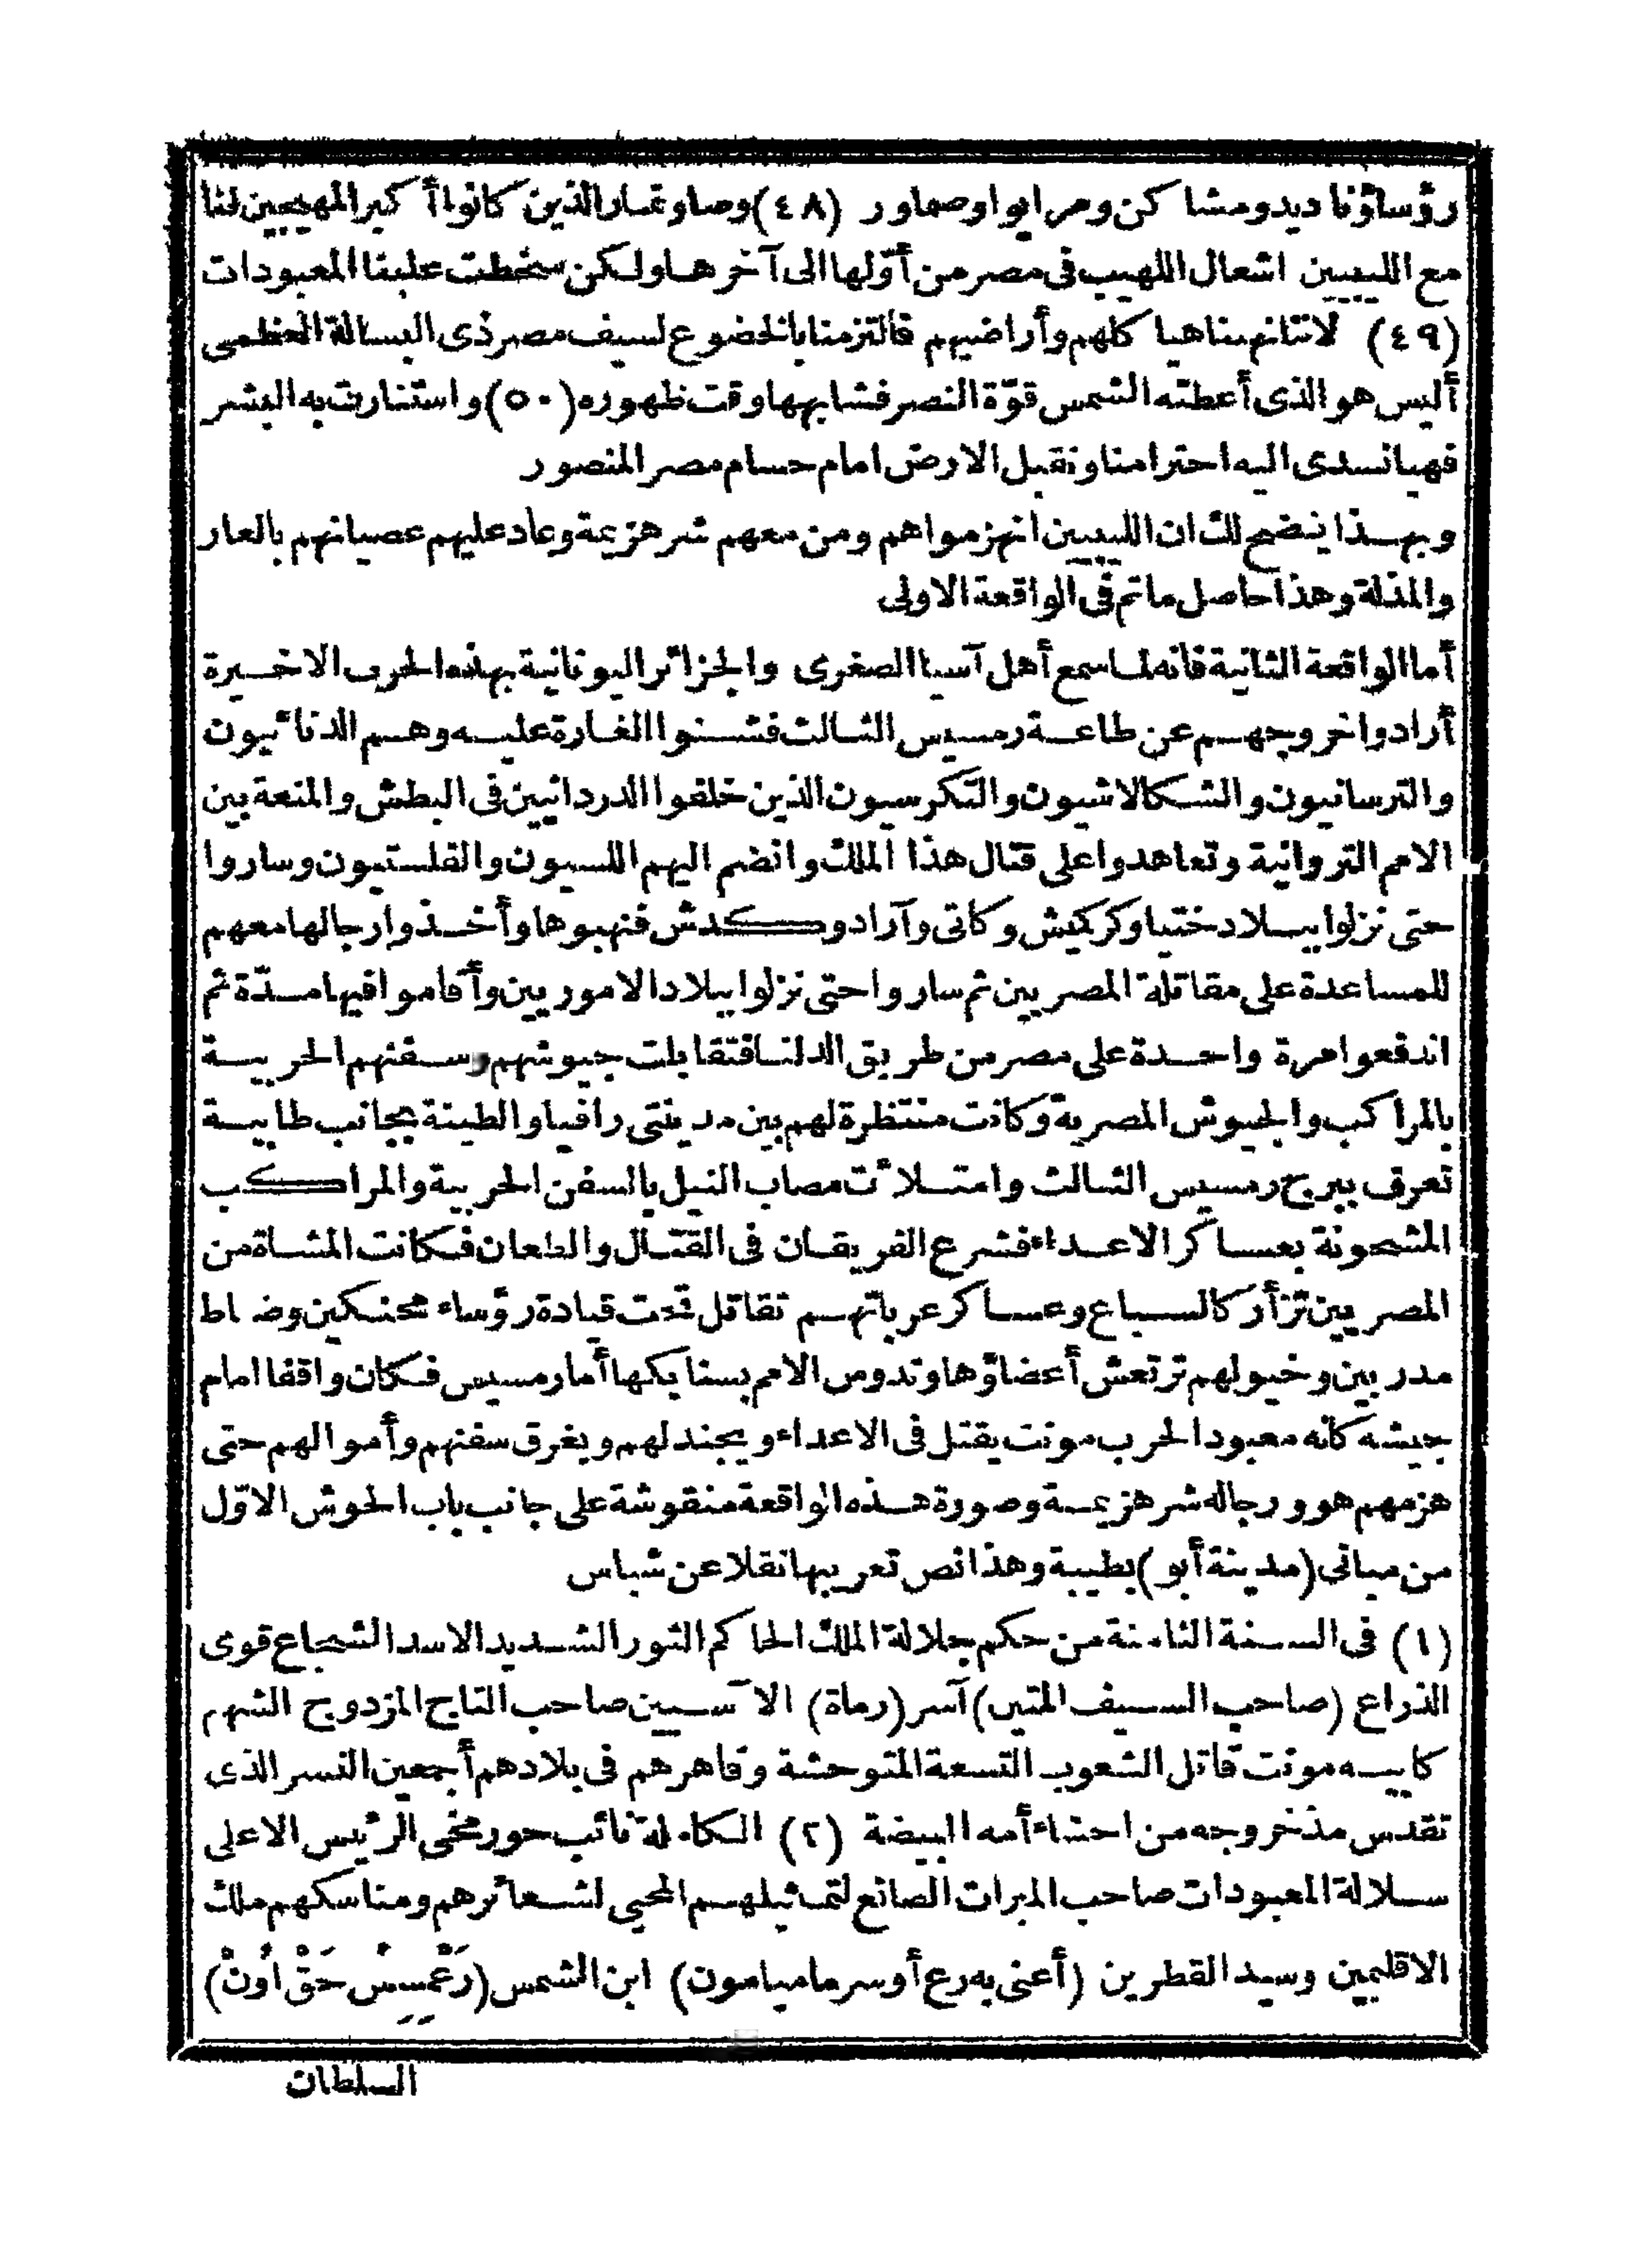 رؤساؤنا ديدومشا كن ومرايوا وصماور (٤٨) وصاوتمار الذين كانوا أكبر المهيجين لنا
مع الليبيين اشعال اللهيب فى مصر من أوّلها الى آخرها ولكن سخطت علينا المعبودات
(٤٩) لاننا نهبناهيا كلهم وأراضيهم فالتزمنا بالخضوع لسيف مصر ذى البسالة العظمى
أليس هو الذى أعطته الشمس قوّة النصر فشابهها وقت ظهوره (٥٠) واستنارت به البشر
فهيا نسدى اليه احترامنا ونقبل الارض امام حسام مصر المنصور
وبهذا يتضح لك ان الليبيين انهزموا هم ومن معهم شر هزيمة وعاد عليهم عصيانهم بالعار
والمذلة وهذا حاصل ما تم فى الواقعة الاولى
أما الواقعة الثانية فانه لما سمع أهل آسيا الصغرى والجزائر اليونانية بهذه الحرب الاخيرة
أرادوا خروجهم عن طاعة رمسيس الثالث فشنوا الغارة عليه وهم الدنائيون
والترسانيون والشكالاشيون والتكرسيون الذين خلفوا الدردانيين فى البطش والمنعة بين
الامم التروانية وتعاهدوا على قتال هذا الملك وانضم اليهم اللسيون والفلستيون وساروا
حتى نزلوا ببلاد ختيا وكركميش وكاتى وآرادو وكدش فنهبوها وأخذوا رجالها معهم
للمساعدة على مقاتلة المصريين ثم ساروا حتى نزلوا ببلاد الاموريين وأقاموا فيها مدّة ثم
اندفعوا مرة واحدة على مصر من طريق الدلتا فتقابلت جيوشهم وسفنهم الحربية
بالمراكب والجيوش المصرية وكانت منتظرة لهم بين مدينتى رافيا والطينة بجانب طابية
تعرف ببرج رمسيس الثالث وامتلأت مصاب النيل بالسفن الحربية والمراكب
المشحونة بعساكر الاعداء فشرع الفريقان فى القتال والطعان فكانت المشاة من
المصريين تزأر كالسباع وعساكر عرباتهم تقاتل تحت قيادة رؤساء محنكين وضباط
مدربين وخيولهم ترتعش أعضاؤها وتدوس الامم بسنابكها أما رمسيس فكان واقفا امام
جيشه كانه معبود الحرب مونت يقتل فى الاعداء ويجندلهم ويغرق سفنهم وأموالهم حتى
هزمهم هو ورجاله شر هزيمة وصورة هذه الواقعة منقوشة على جانب باب الحوش الاوّل
من مبانى (مدينة أبو) بطيبة وهذا نص تعريبها نقلا عن شباس
(١) فى السنة الثامنة من حكم جلالة الملك الحاكم الثور الشديد الاسد الشجاع قوى
الذراع (صاحب السيف المتين) آسر (رماة) الآسيين صاحب التاج المزدوج الشهم
كابيه مونت قاتل الشعوب التسعة المتوحشة وقاهرهم فى بلادهم أجمعين النسر الذى
تقدس مذ خروجه من احشاء أمه البيضة (٢) الكاملة نائب حور مخى الرئيس الاعلى
سلالة المعبودات صاحب المبرات الصانع لتماثيلهم المحيى لشعائرهم ومناسكهم ملك
الاقليمين وسيد القطرين (أعنى به رع أوسرما ميامون) ابن الشمس (رَعْمِسِسُ حَقْ اُونْ)
السلطان